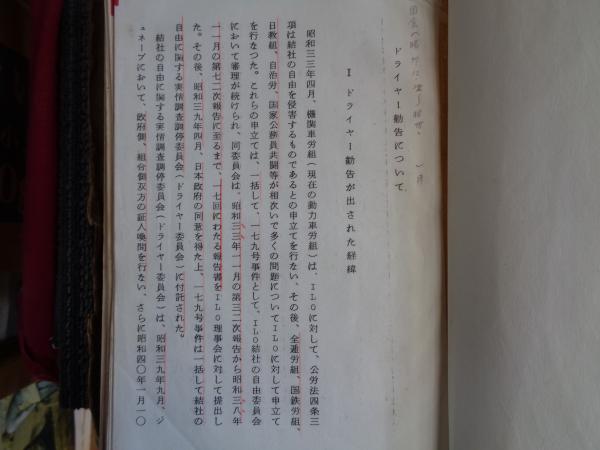 ドライヤー勧告について
I ドライヤー勧告が出された経緯
昭和三三年四月、機関車労組（現在の動力車労組）は、ＩＬＯに対して、公労法四条三
項は結社の自由を侵害するものであるとの申立てを行ない、その後、全逓労組、国鉄労組、
日教組、自治労、国家公務員共闘等が相次いで多くの問題についてＩＬＯに対して申立て
を行なつた。これらの申立ては、一括して、一七九号事件として、ＩＬＯ結社の自由委員会
において審理が続けられ、同委員会は、昭和三三年一一月の第三二次報告から昭和三八年
一一月の第七二次報告に至るまで、一七回にわたる報告書をＩＬＯ理事会に対して提出し
た。その後、昭和三九年四月、日本政府の同意を得た上、一七九号事件は一括して結社の
自由に関する実情調査調停委員会（ドライヤー委員会）に付託された。
結社の自由に関する実情調査調停委員会（ドライヤー委員会）は、昭和三九年九月、ジ
ュネーブにおいて、政府側、組合側双方の証人喚問を行ない、さらに昭和四〇年一月一〇